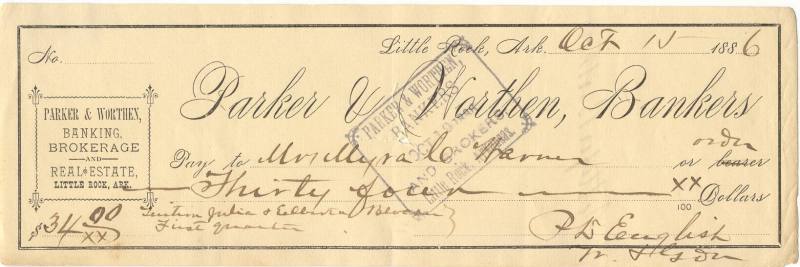 No.
Little Rock, Ark. Oct 15 1886
PARKER & WORTHEN,
BANKING,
BROKERAGE
AND
REAL ESTATE,
LITTLE ROCK, ARK.
Parker & Worthen, Bankers
PARKER & WORTHEN,
BANKERS
OCT
AND BROKERS
Little Rock,
Pay to Mrs Myra C. Warner or bearer order
Thirty four xx/100 Dollars
$34 00/xx
Tuition Julia &
First quarter
P D English